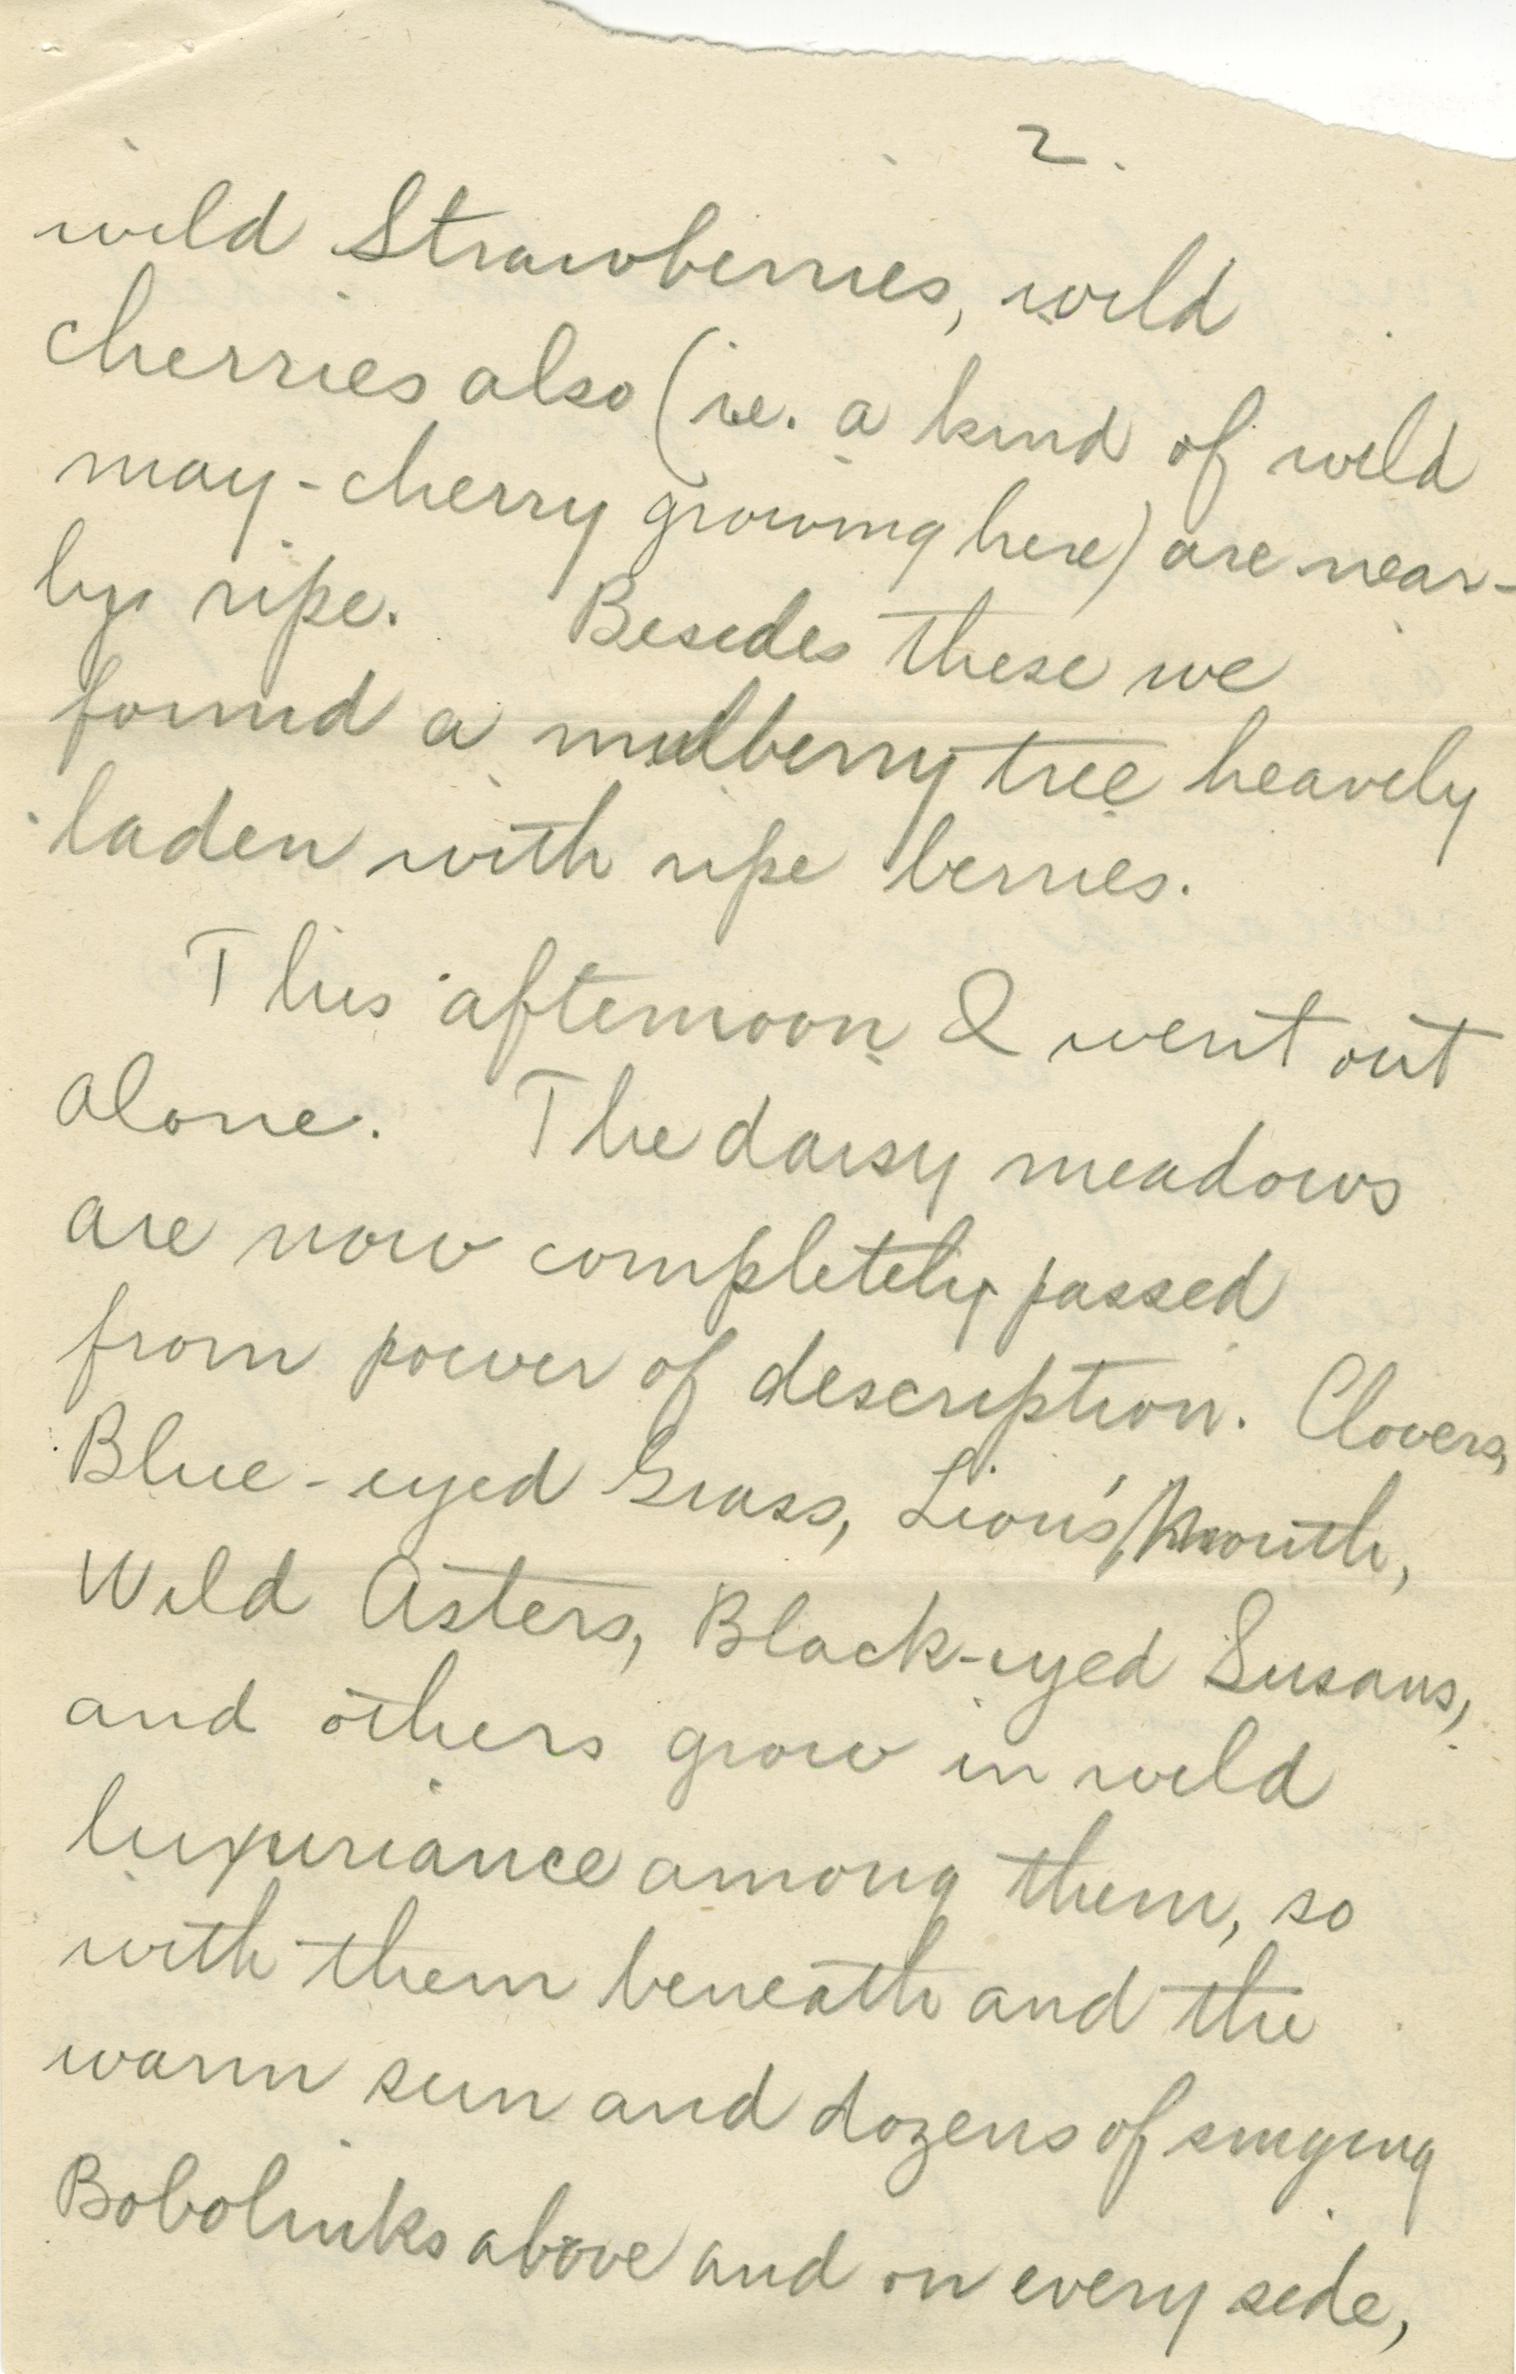 2.
wild Strawberries, wild
cherries also (i.e. a kind of wild
may-cherry growing here) are near-
ly ripe. Besides these we
found a mulberry tree heavily
laden with ripe berries.
This afternoon I went out
alone. The daisy meadows
are now completely passed
from power of description. Clovers,
Blue-eyed Grass, Lion's Mouth,
Wild Asters, Black-eyed Susans,
and others grow in wild
luxuriance among them, so
with them beneath and the
warm sun and dozens of singing
Bobolinks above and on every side,